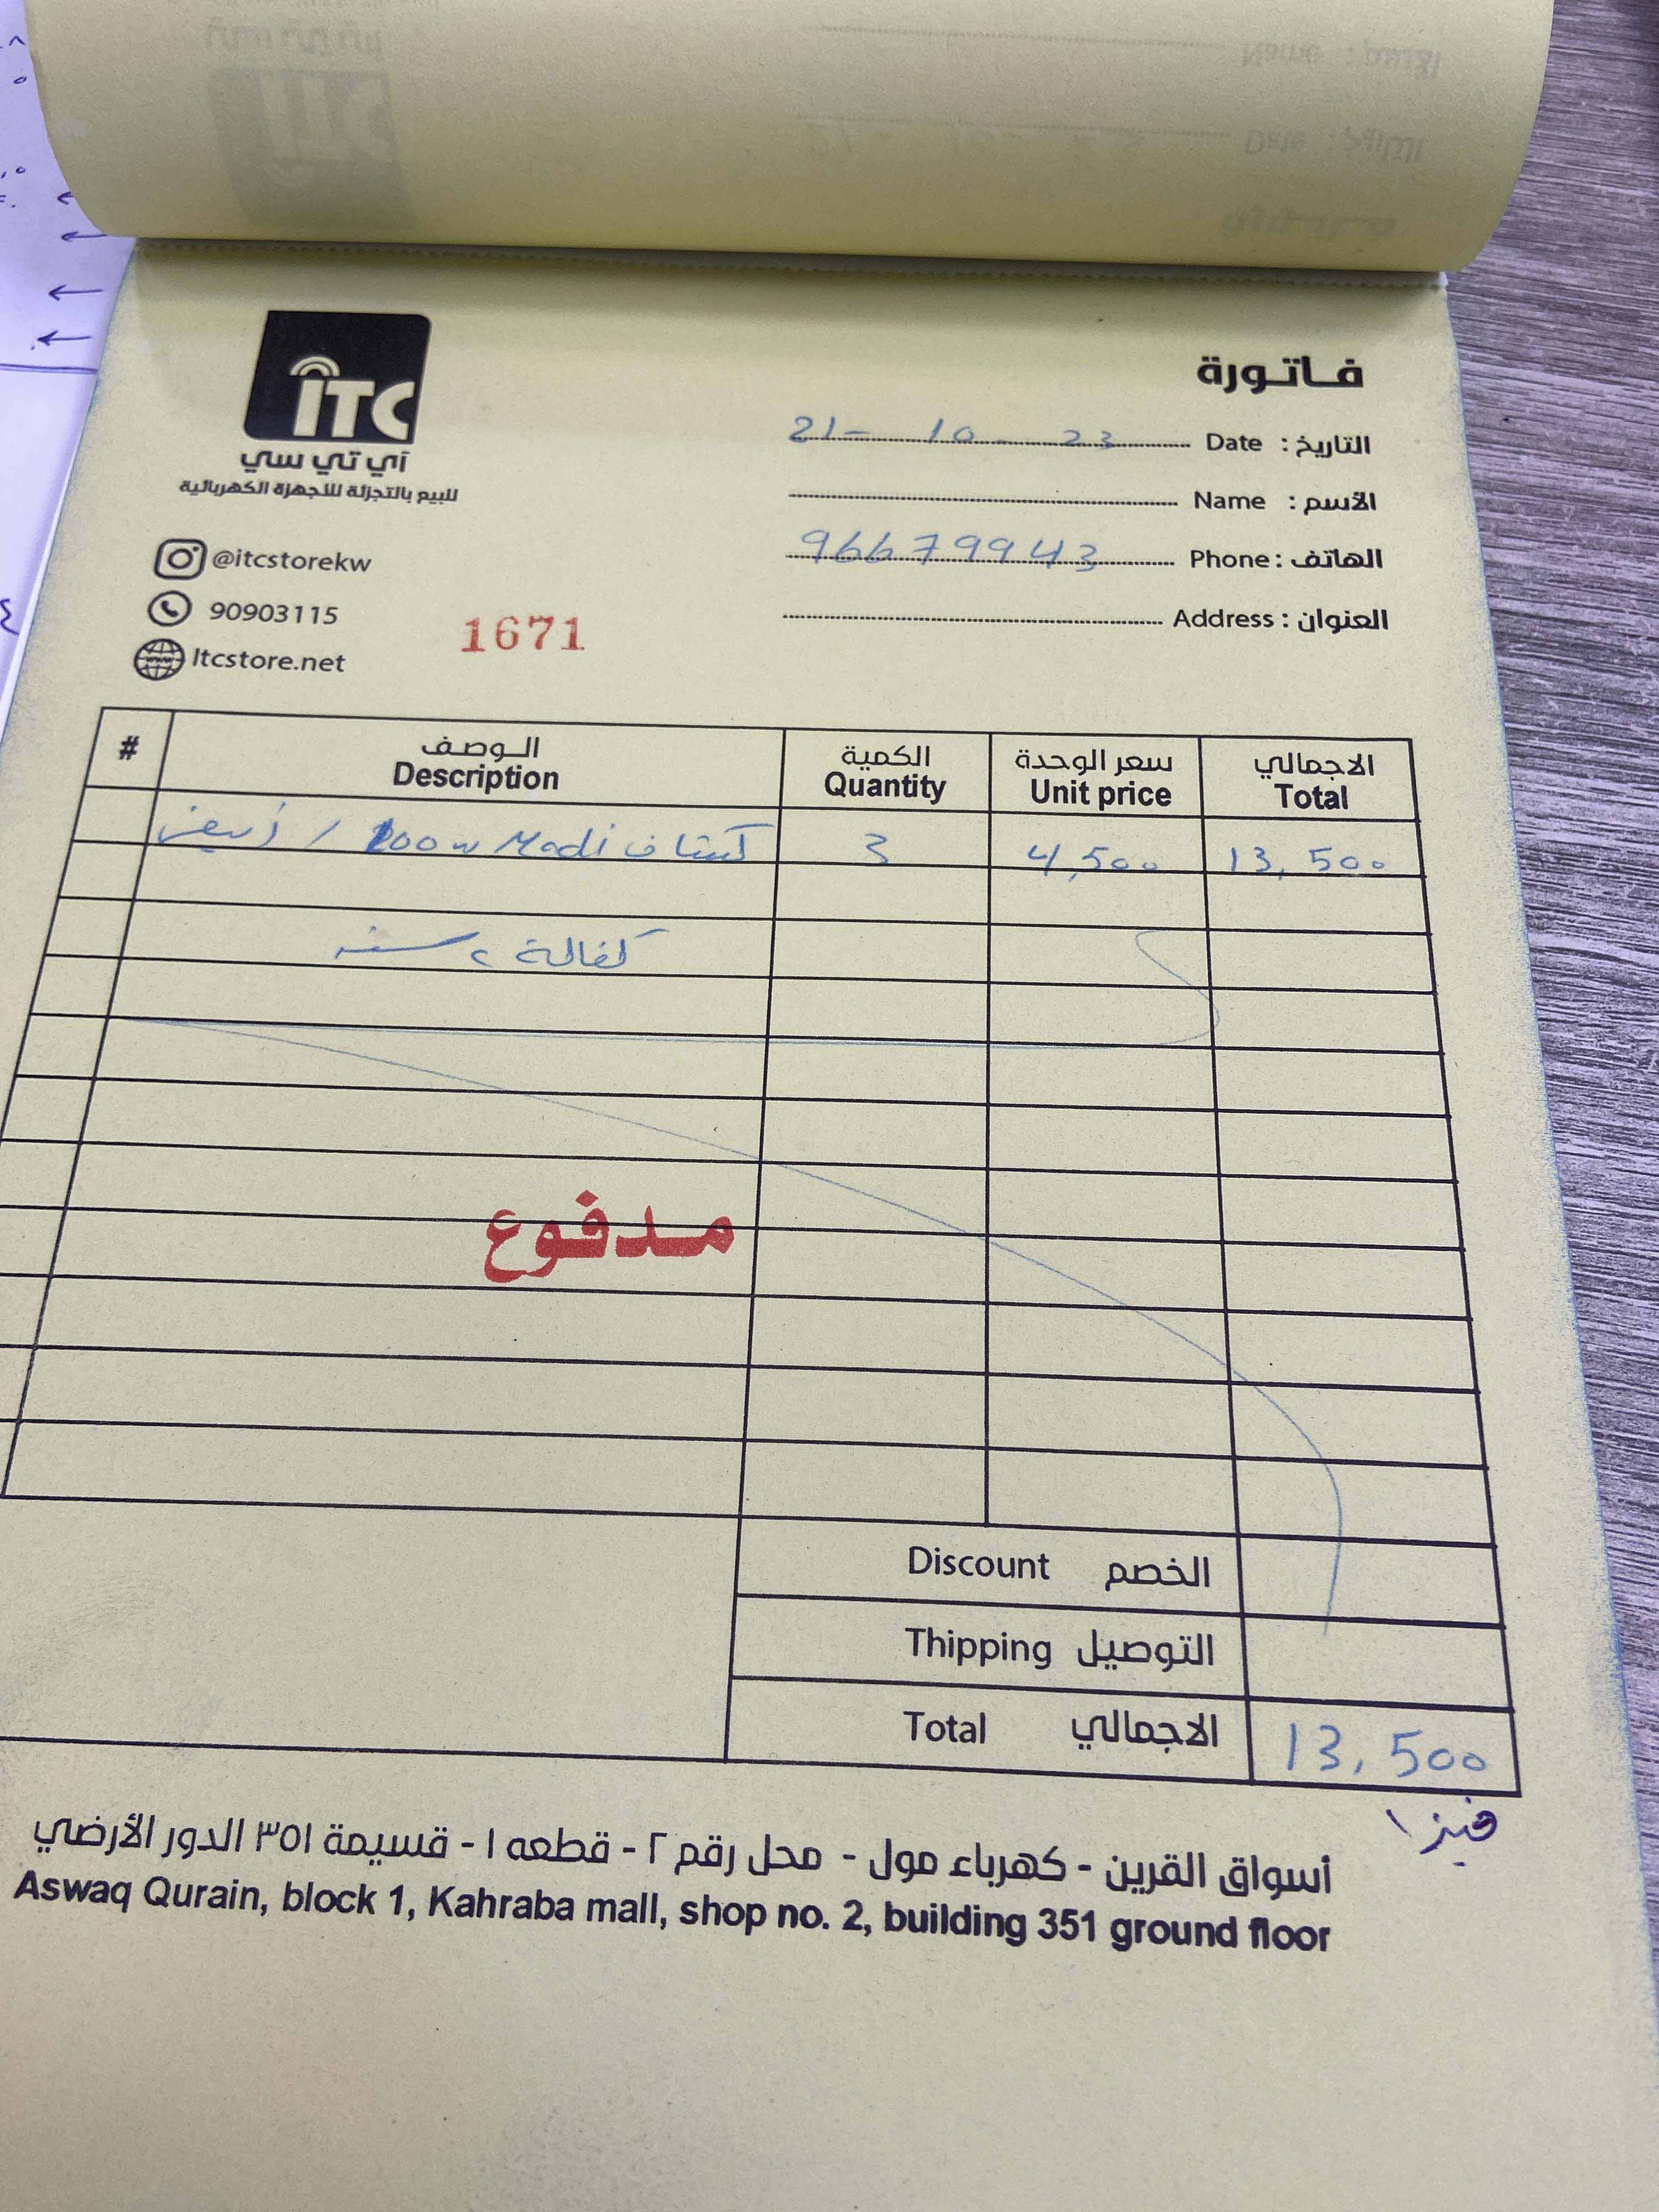 ITC
آي تي سي
للبيع بالتجزئة للأجهزة الكهربائية
@itcstorekw
90903115
Itcstore.net
1671
فاتورة
التاريخ : Date 21 - 10 - 23
الأسم : Name
الهاتف : Phone 96679943
العنوان : Address
# الوصف الكمية سعر الوحدة الاجمالي
Description Quantity Unit price Total
كشاف Madi 100w / أبيض 3 4,500 13,500
كفالة ٢ سنه
مدفوع
Discount الخصم
Thipping التوصيل
Total الاجمالي 13,500
فيزا
أسواق القرين - كهرباء مول - محل رقم ٢ - قطعه ١ - قسيمة ٣٥١ الدور الأرضي
Aswaq Qurain, block 1, Kahraba mall, shop no. 2, building 351 ground floor